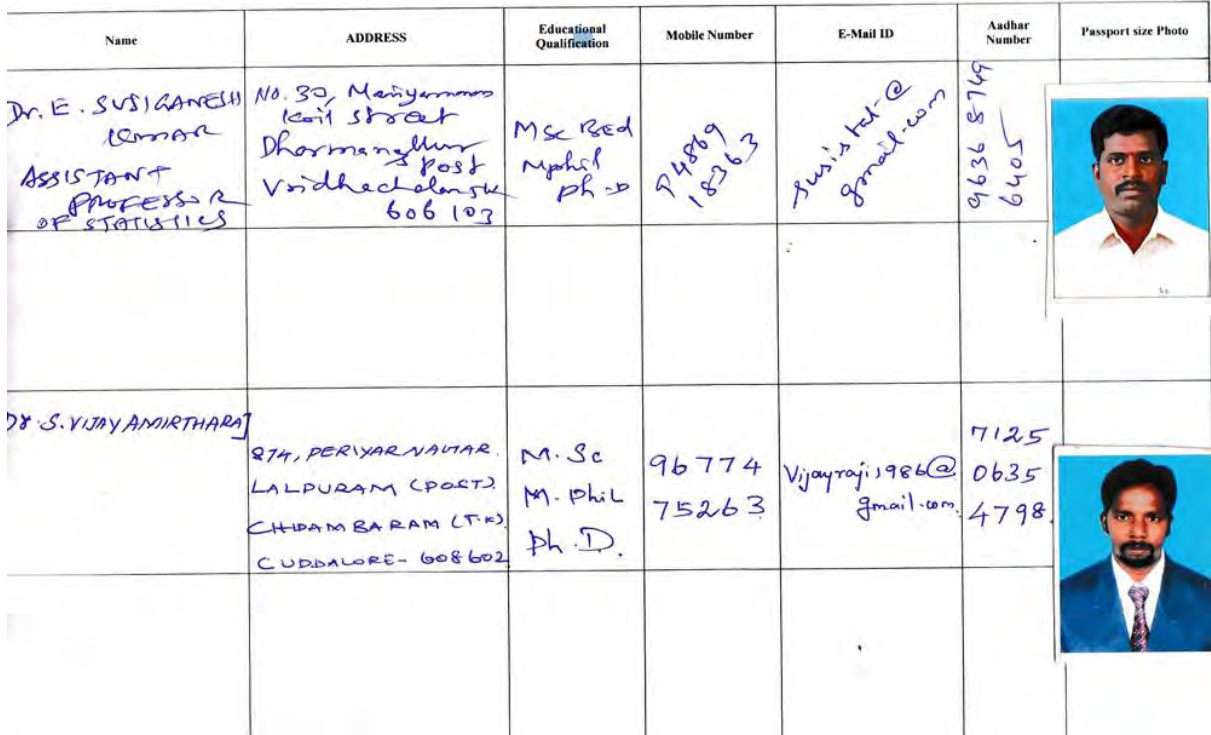 Name
ADDRESS
Educational
Qualification
Mobile Number
E-Mail ID
Aadhar
Number
Passport size Photo
Dr. E. SUSIGANESH
Kumar
ASSISTANT
PROFESSOR
OF STATISTICS
No. 30, Mariyamman
Koil Street
Post
606 103
MSc BEd
Mphil
Ph.D
94869
18363
susistat@
gmail.com
9636 5749
6405
Dr. S. VIJAY AMIRTHARAJ
874, PERIYAR NAGAR.
LALPURAM (POST).
CHIDAMBARAM (T.K).
CUDDALORE - 608602
M.Sc
M.Phil
Ph.D.
96774
75263
Vijayraji1986@
gmail.com.
7125
0635
4798.